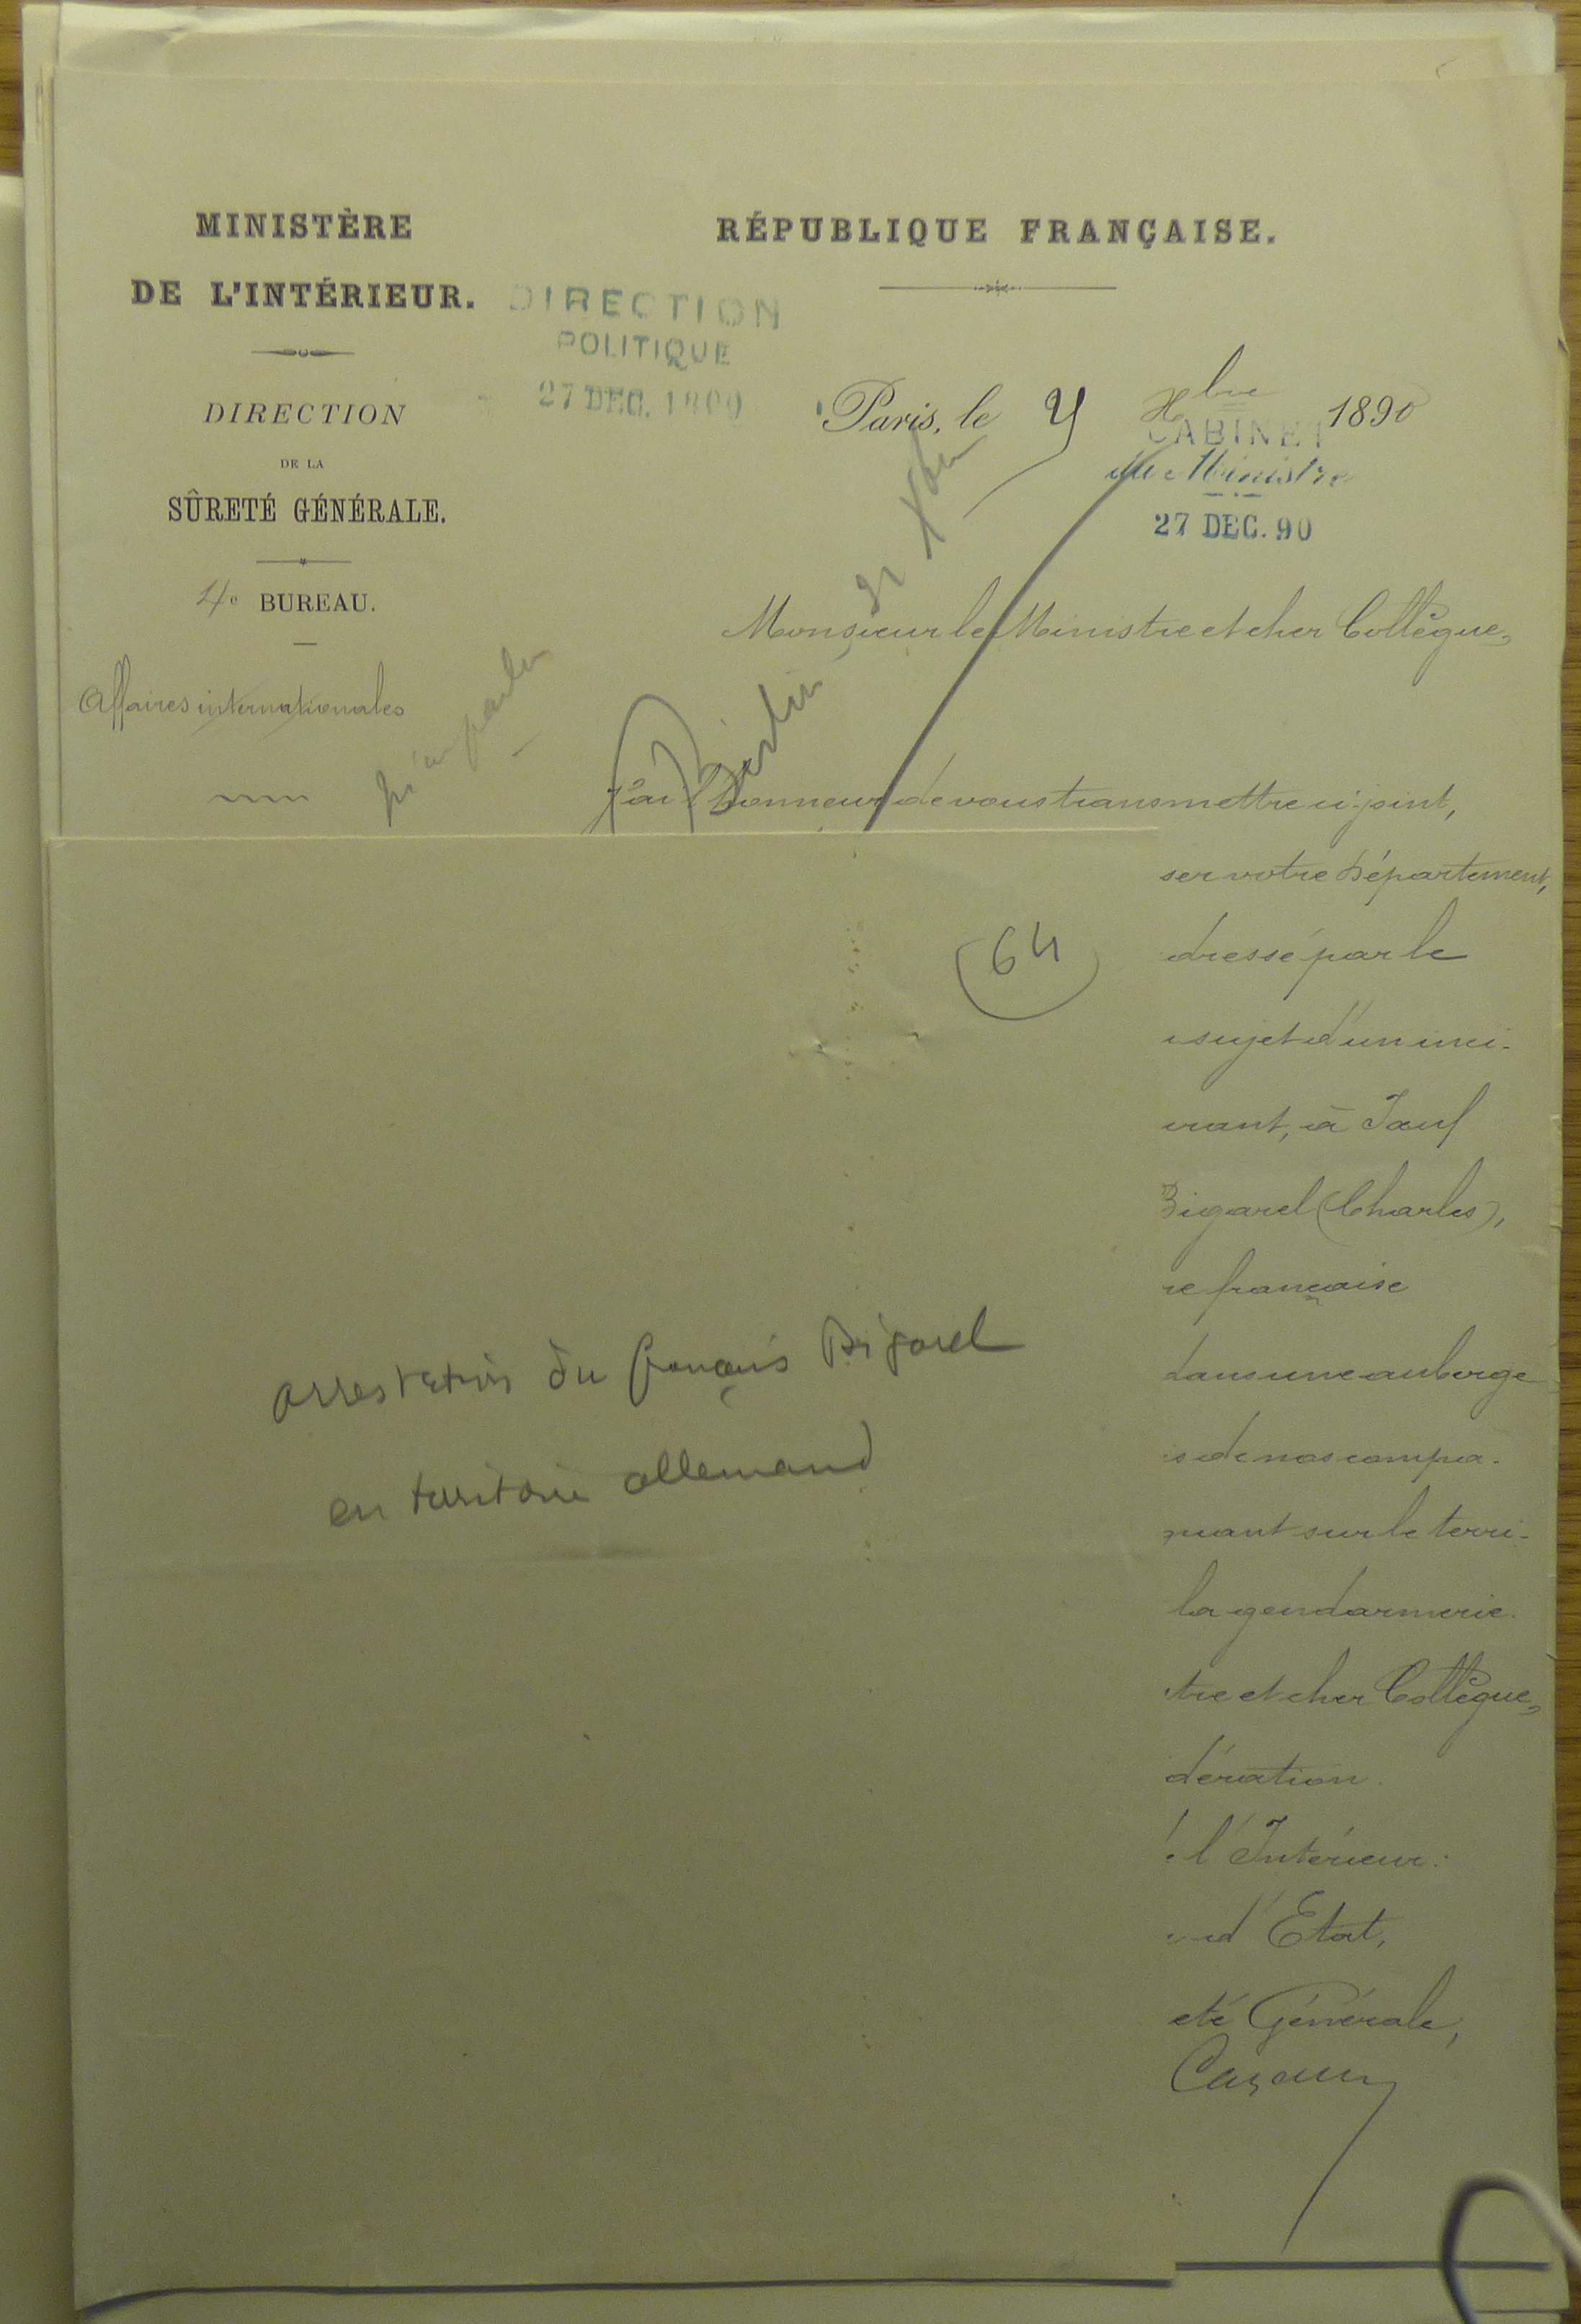 MINISTÈRE
DE L'INTÉRIEUR.
DIRECTION
DE LA
SÛRETÉ GÉNÉRALE.
4e BUREAU.
Affaires internationales
RÉPUBLIQUE FRANÇAISE.
DIRECTION
POLITIQUE
27 DEC. 1890
Paris, le Xbre 1890
CABINET
du Ministre
27 DEC. 90
Monsieur le Ministre et cher Collègue,
Berlin 31 Xbre
J'ai l'honneur de vous transmettre ci-joint,
ser votre Département,
dressé par le
sujet d'un inci-
rant, à
Bigarel (Charles),
re française
dans une auberge
s de nos compa-
quant sur le terri-
la gendarmerie.
tre et cher Collègue,
dération.
l'Intérieur:
d'Etat,
eté Générale,
64
arrestation du français Bigarel
en territoire allemand